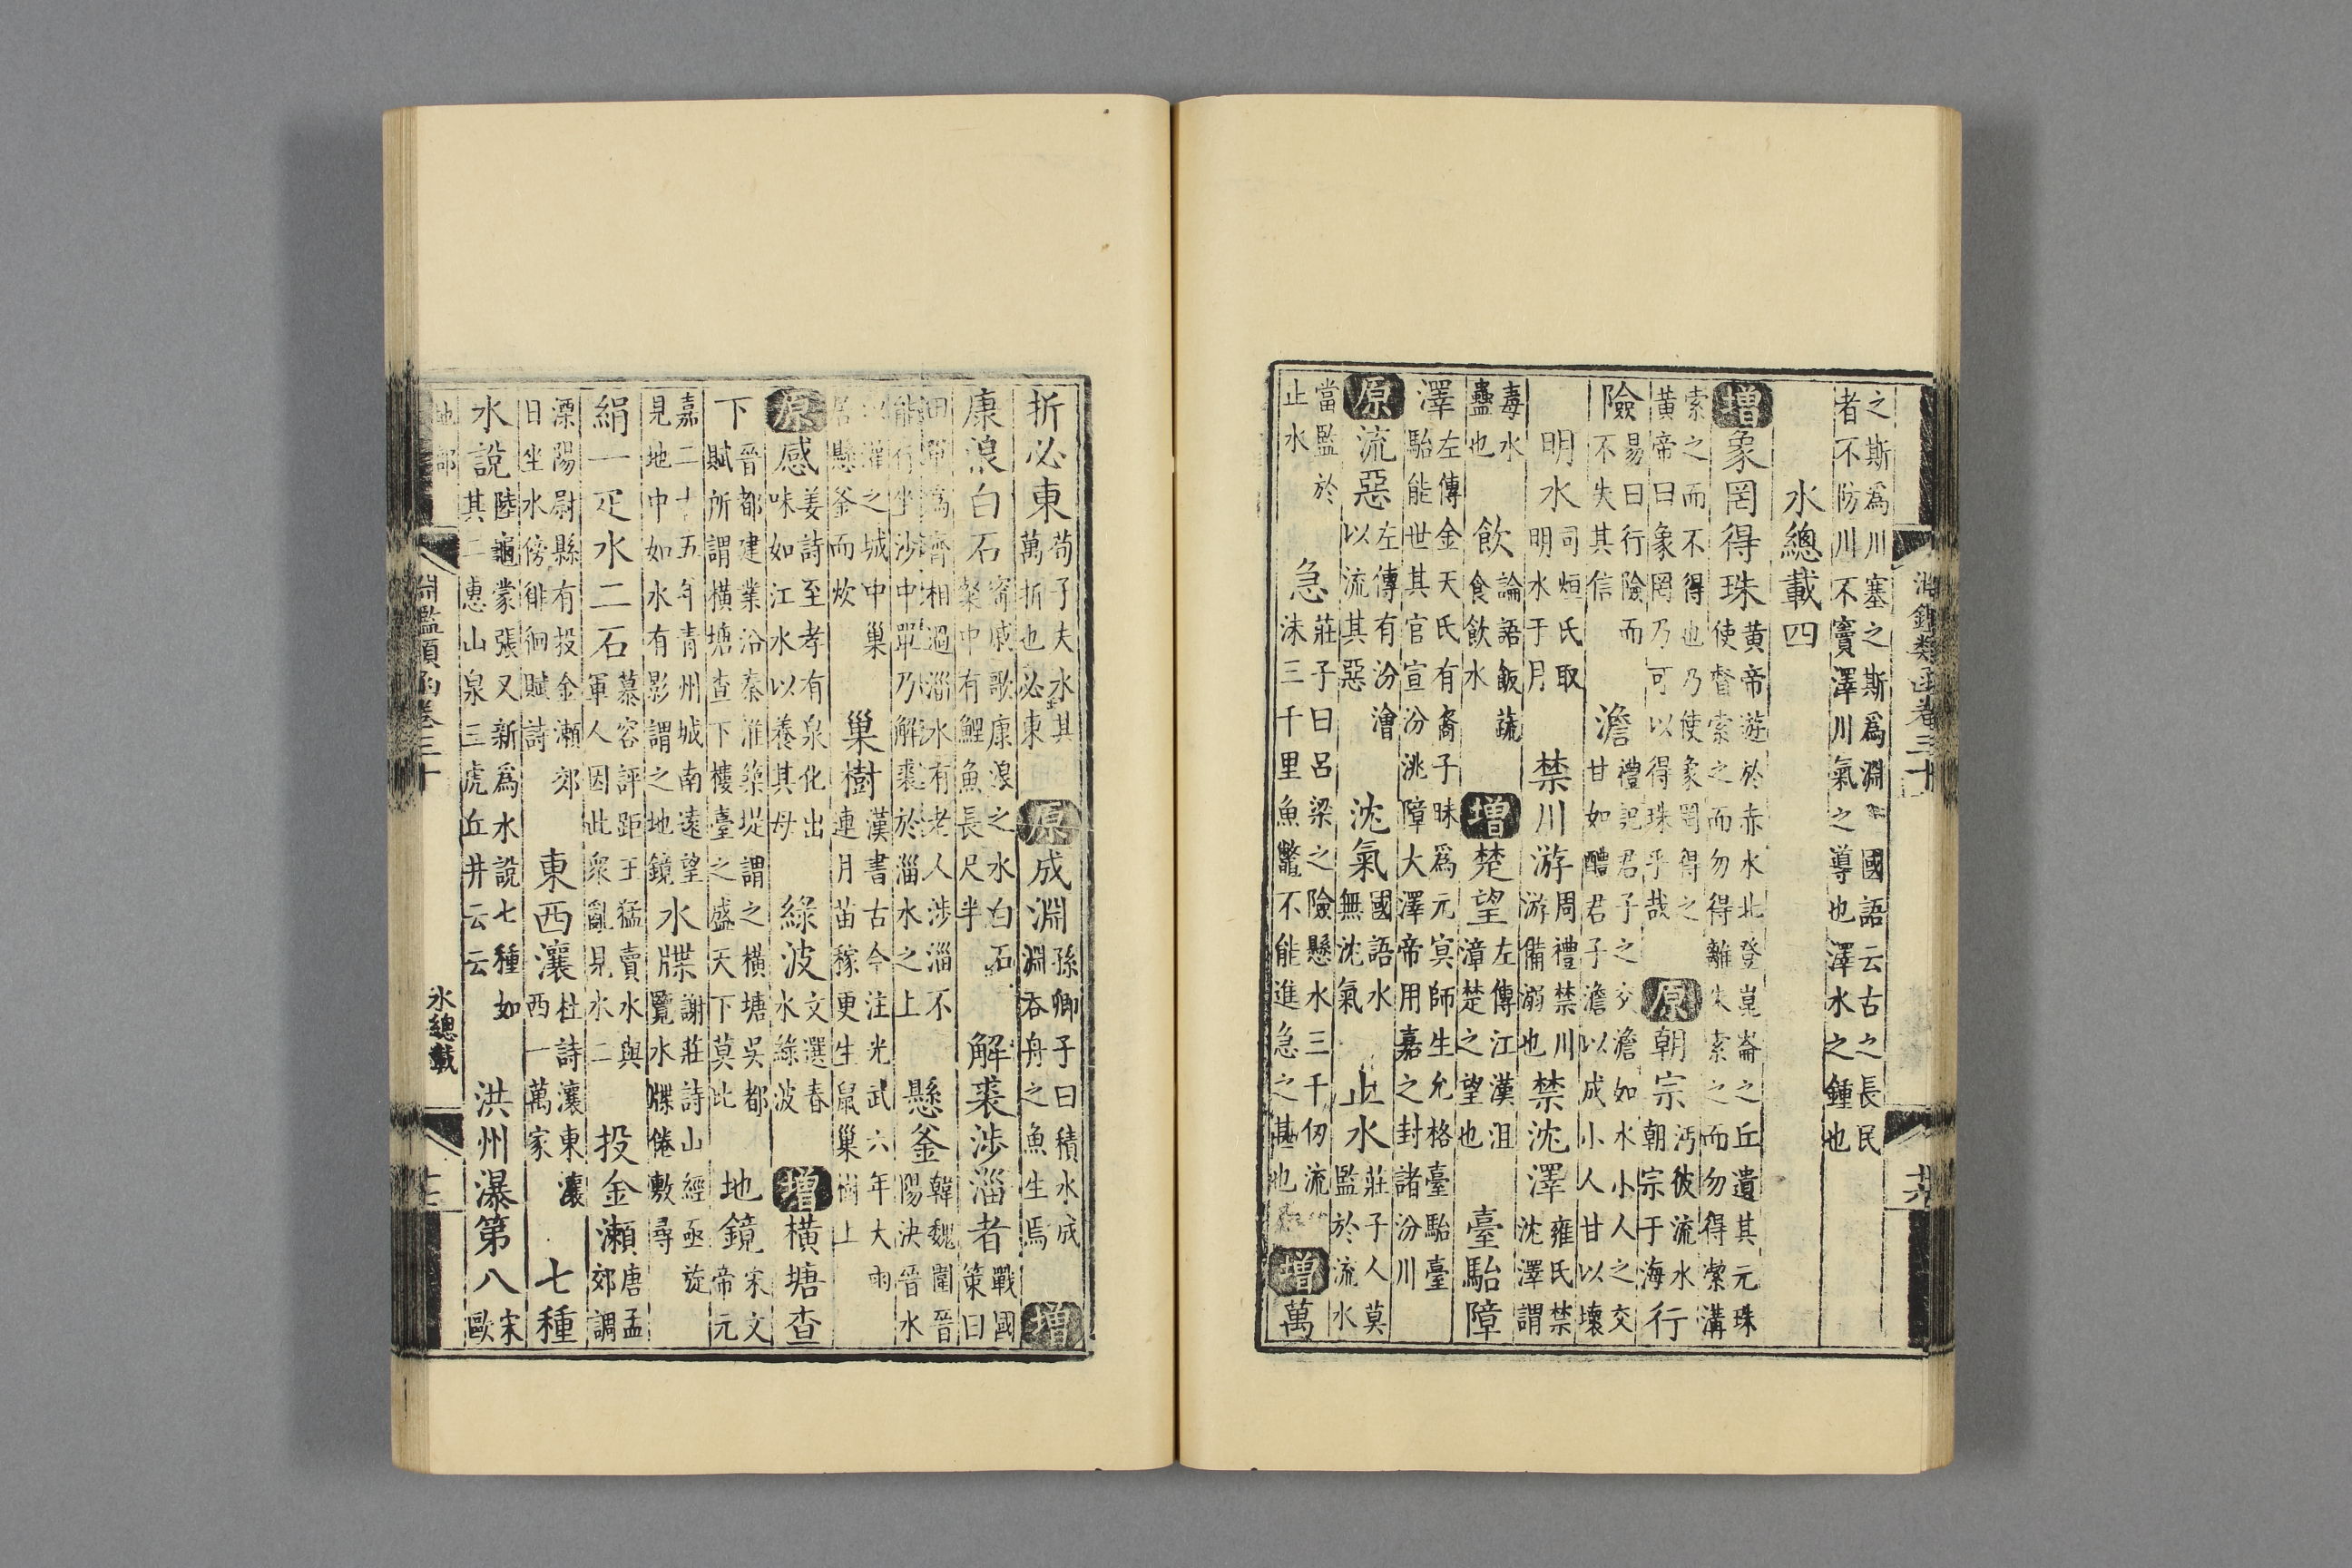 之斯爲川塞之斯爲淵 國語云古之長民
者不防川不竇澤川氣之導也澤水之鍾也
水總載四
增象罔得珠 黄帝遊於赤水北登崑崙之丘遺其元珠
使督索之而勿得離朱索之而勿得絮溝
索之而不得也乃使象罔得之
黄帝曰象罔乃可以得珠乎哉 原朝宗 沔彼流水
朝宗于海 行
險 易曰行險而
不失其信 澹 禮記君子之交澹如水小人之交
甘如醴君子澹以成小人甘以壞
明水 司烜氏取
明水于月 禁川游 周禮禁川
游備溺也 禁沈澤 雍氏禁
沈澤謂
毒水
蠱也 飲 論語飯蔬
食飲水 增楚望 左傳江漢沮
漳楚之望也 臺駘障
澤 左傳金天氏有裔子昧爲元冥師生允格臺駘臺
駘能世其官宣汾洮障大澤帝用嘉之封諸汾川
原流惡 左傳有汾澮
以流其惡 沈氣 國語水
無沈氣 止水 莊子人莫
監於流水
當監於
止水 急 莊子曰呂梁之險懸水三千仞流
沫三千里魚鼈不能進急之甚也 增萬
淵鑑類函卷三十
折必東 荀子夫水其
萬折也必東 原成淵 孫卿子曰積水成
淵淵吞舟之魚生焉 增
康浪白石 甯戚歌康浪之水白石
粲中有鯉魚長尺半 解裘涉淄者 戰國
策曰
田單爲齊相過淄水有老人涉淄不
能行坐沙中單乃解裘於淄水之上 懸釜 韓魏圍晉
陽決晉水
以灌之城中巢
居懸釜而炊 巢樹 漢書古今注光武六年大雨
連月苗稼更生鼠巢樹上
原感 姜詩至孝有泉化出
味如江水以養其母 綠波 文選春
水綠波 增橫塘查
下 晉都建業沿秦淮築堤謂之橫塘吳都
賦所謂橫塘查下樓臺之盛天下莫比 地鏡 宋文
帝元
嘉二十五年青州城南遠望
見地中如水有影謂之地鏡 水牒 謝莊詩山經亟旋
覽水牒倦敷尋
絹一疋水二石 慕容評距王猛賣水與
軍人因此衆亂見水二 投金瀨 唐孟
郊調
溧陽尉縣有投金瀨郊
日坐水傍徘徊賦詩 東西瀼 杜詩瀼東瀼
西一萬家 七種
水說 陸龜蒙張又新爲水說七種如
其二惠山泉三虎丘井云云 洪州瀑第八 宋
歐
地部
淵鑑類函卷三十
水總載